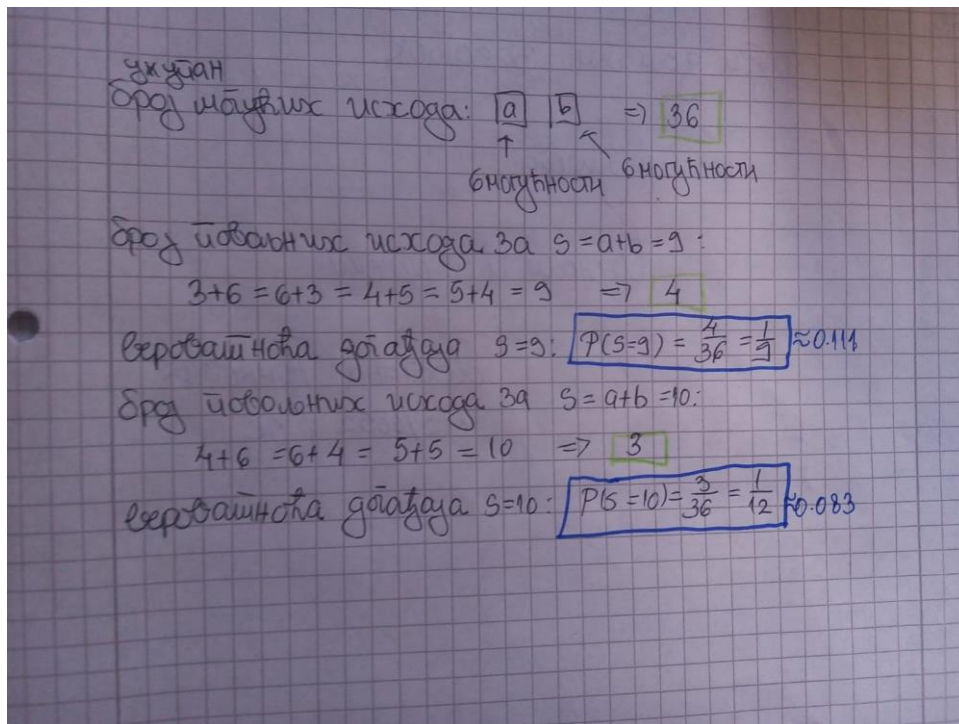 укупан
број могућих исхода: a b => 36
6 могућности 6 могућности
број повољних исхода за S=a+b=9:
3+6 = 6+3 = 4+5 = 5+4 = 9 => 4
вероватноћа догађаја S=9: P(S=9) = 4/36 = 1/9 ≈0.111
број повољних исхода за S=a+b=10:
4+6 = 6+4 = 5+5 = 10 => 3
вероватноћа догађаја S=10: P(S=10) = 3/36 = 1/12 ≈0.083